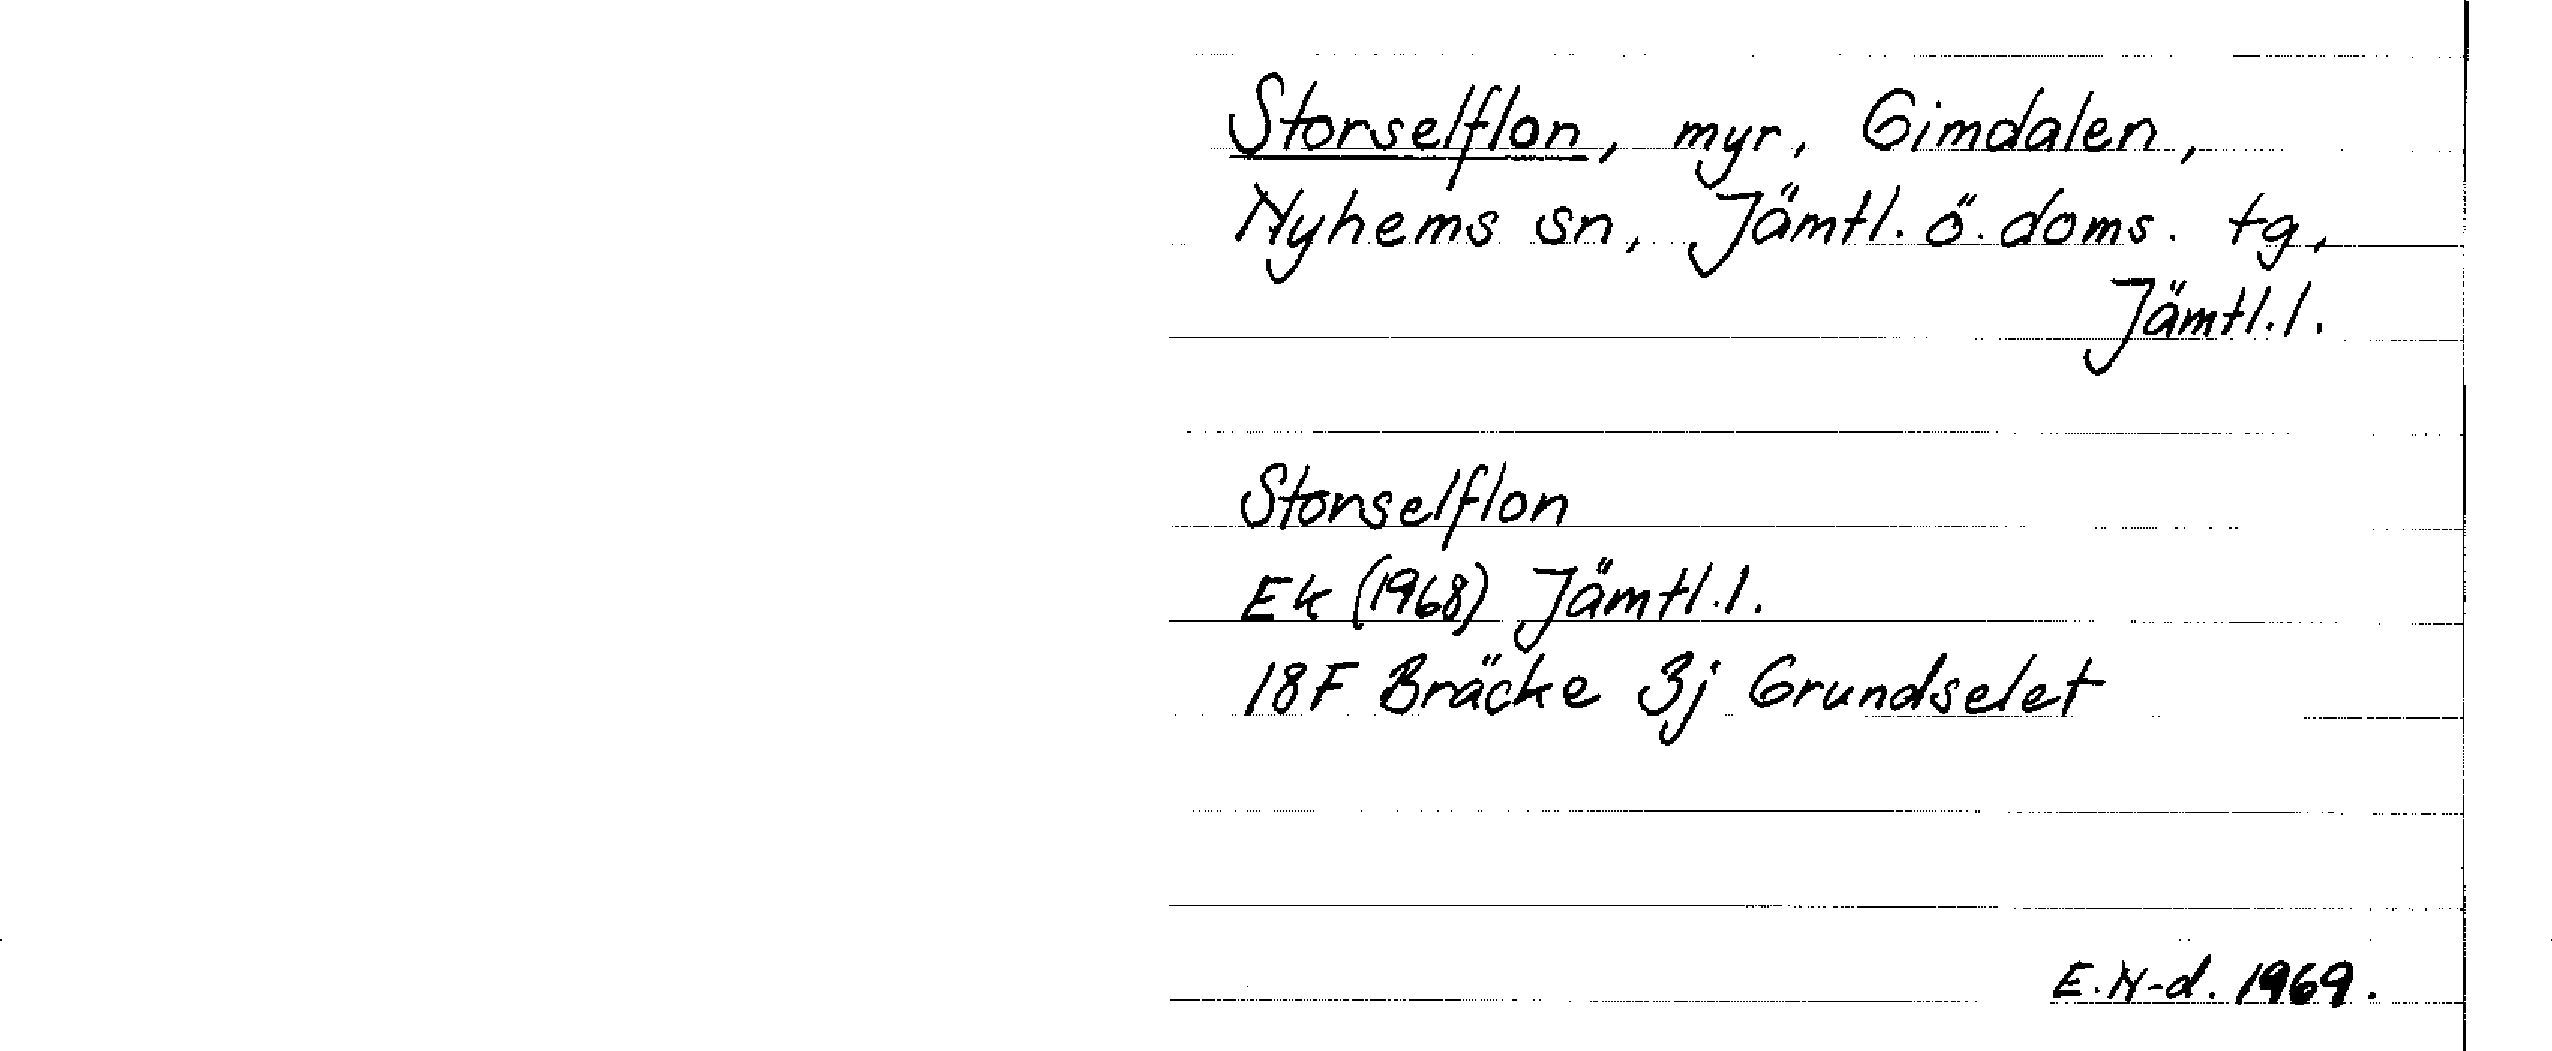 Storselflon, myr, Gimdalen,
Nyhems sn, Jämtl. ö. doms. tg,
Jämtl. l.
Storselflon
Ek (1968) Jämtl. l.
18F Bräcke 3j Grundselet
E. N-d. 1969.